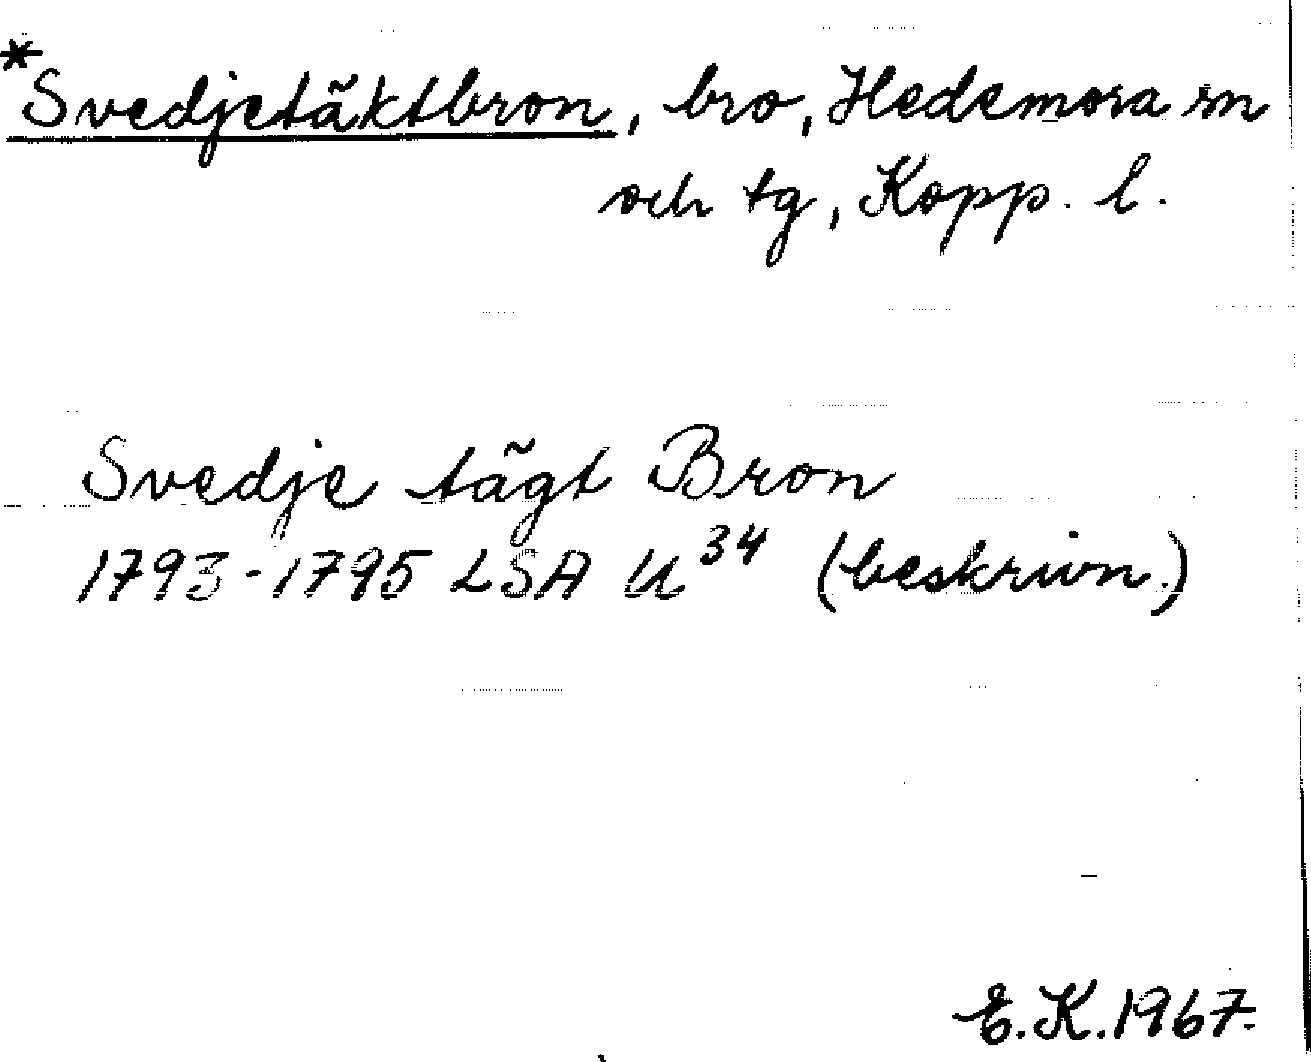 *Svedjetäktbron, bro, Hedemora sn
och tg, Kopp. l.
Svedje tägt Bron
1793-1795 LSA U³⁴ (beskrivn.)
E.K. 1967.